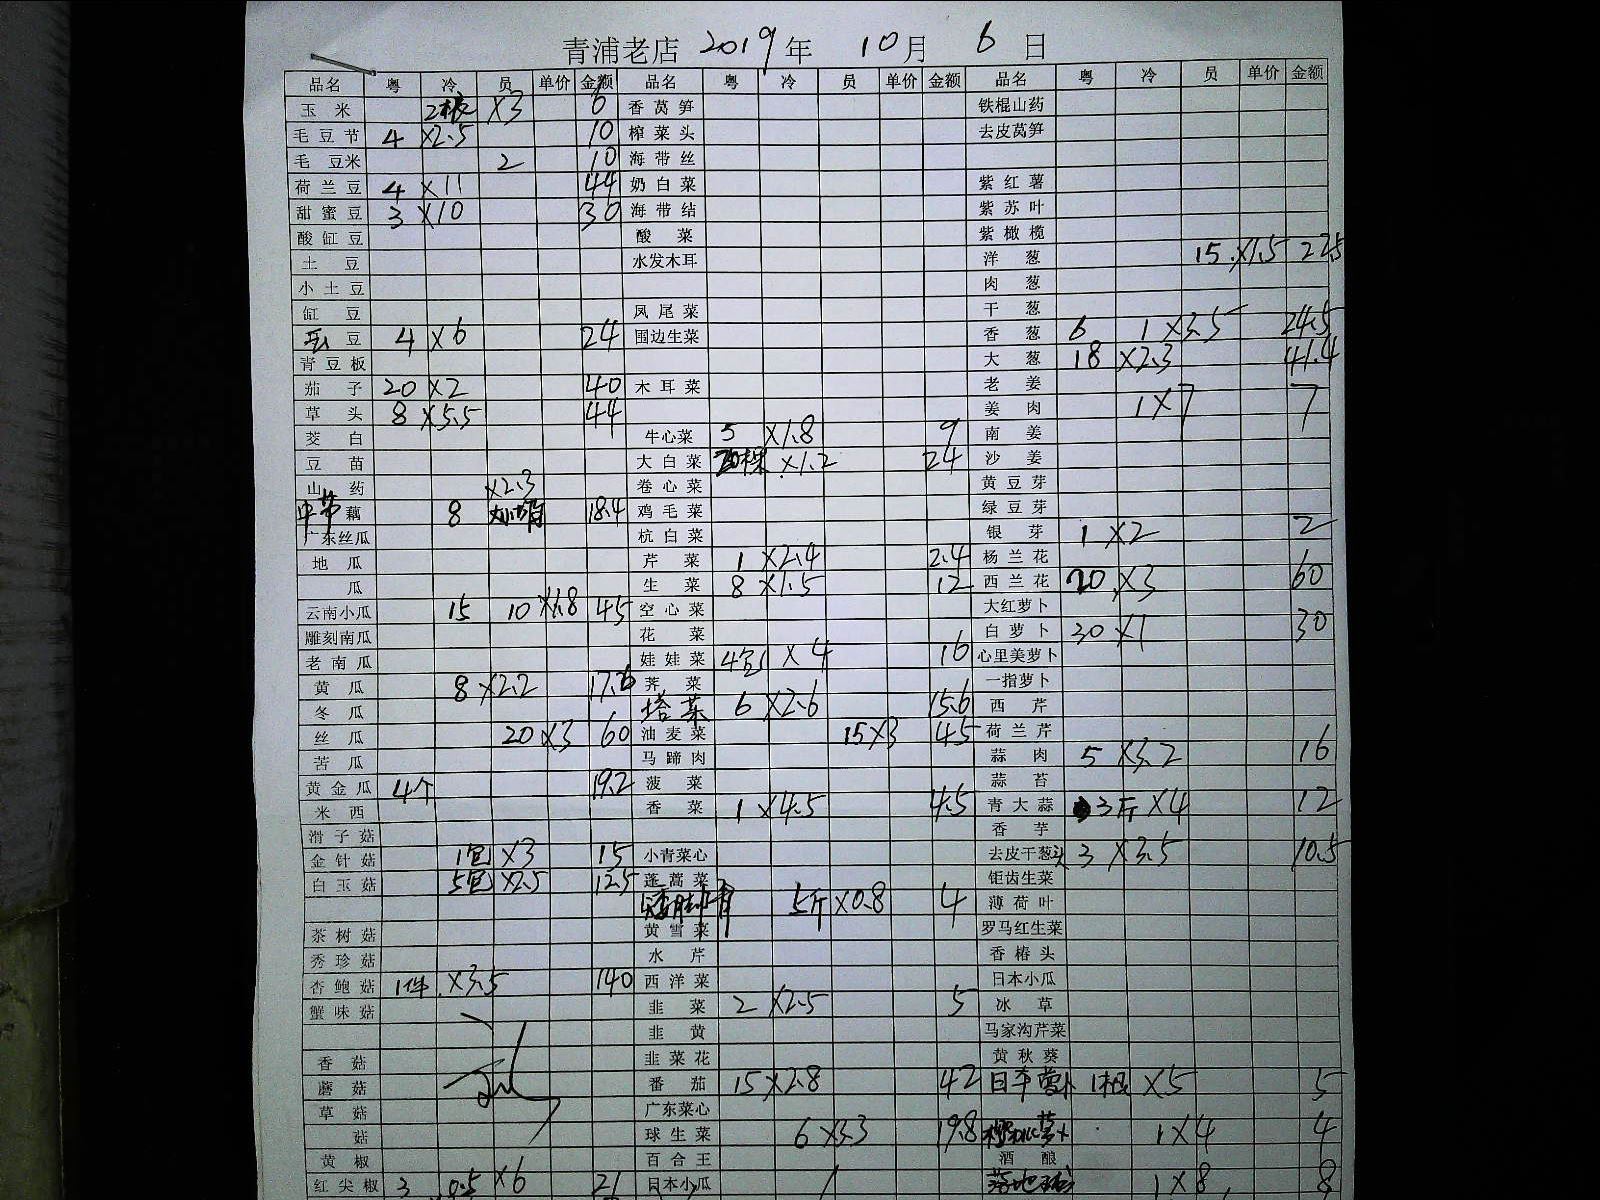 青浦老店 2019年 10月 6日
品名 粤 冷 员 单价 金额 品名 粤 冷 员 单价 金额 品名 粤 冷 员 单价 金额
玉米 2根 X3 6 香莴笋 铁棍山药
毛豆节 4 X2.5 10 榨菜头 去皮莴笋
毛豆米 2 10 海带丝
荷兰豆 4 X11 44 奶白菜 紫红薯
甜蜜豆 3 X10 30 海带结 紫苏叶
酸缸豆 酸菜 紫橄榄
土豆 水发木耳 洋葱 15 X1.5 22.5
小土豆 肉葱
缸豆 凤尾菜 干葱
豆 4 X6 24 围边生菜 香葱 6 1 X3.5 24.5
青豆板 大葱 18 X2.3 41.4
茄子 20 X2 40 木耳菜 老姜
草头 8 X5.5 44 姜肉 1X7 7
茭白 牛心菜 5 X1.8 9 南姜
豆苗 大白菜 20棵 X1.2 24 沙姜
山药 X2.3 卷心菜 黄豆芽
中节藕 8 18.4 鸡毛菜 绿豆芽
广东丝瓜 杭白菜 银芽 1 X2 2
地瓜 芹菜 1 X2.4 2.4 杨兰花
瓜 生菜 8 X1.5 12 西兰花 20 X3 60
云南小瓜 15 10 X1.8 45 空心菜 大红萝卜
雕刻南瓜 花菜 白萝卜 30 X1 30
老南瓜 娃娃菜 4包 X4 16 心里美萝卜
黄瓜 8 X2.2 17.6 荠菜 一指萝卜
冬瓜 塔菜 6 X2.6 15.6 西芹
丝瓜 20 X3 60 油麦菜 15X3 45 荷兰芹
苦瓜 马蹄肉 蒜肉 5 X3.2 16
黄金瓜 4个 19.2 菠菜 蒜苔
米西 香菜 1 X4.5 4.5 青大蒜 3斤 X4 12
滑子菇 香芋
金针菇 1包 X3 15 小青菜心 去皮干葱头 3 X3.5 10.5
白玉菇 5包 X2.5 12.5 蓬蒿菜 钜齿生菜
5斤 X0.8 4 薄荷叶
茶树菇 黄雪菜 罗马红生菜
秀珍菇 水芹 香椿头
杏鲍菇 1件 X3.5 140 西洋菜 日本小瓜
蟹味菇 韭菜 2 X2.5 5 冰草
韭黄 马家沟芹菜
香菇 韭菜花 黄秋葵
蘑菇 番茄 15 X2.8 42 日本萝卜 1根 X5 5
草菇 广东菜心
菇 球生菜 6 X3.3 19.8 1X4 4
黄椒 百合王 酒酿
红尖椒 3 0.5 X6 21 日本小瓜 1X8 8